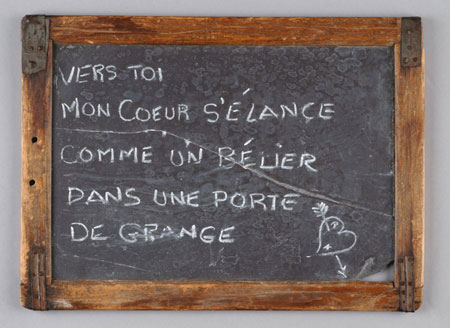 VERS TOI
MON COEUR S'ÉLANÇE
COMME UN BÉLIER
DANS UNE PORTE
DE GRANGE